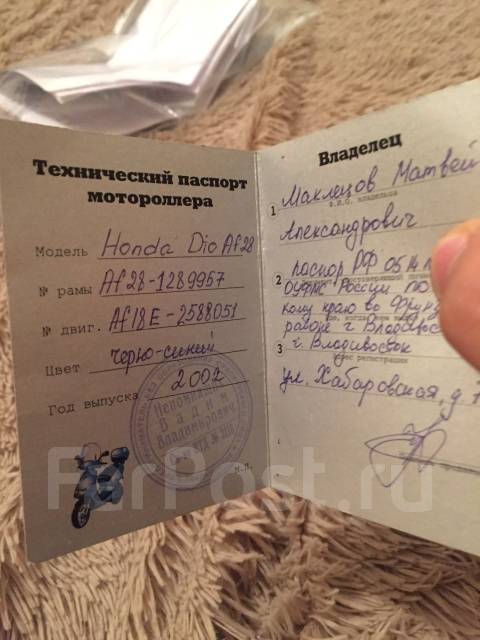 Технический паспорт
мотороллера
Модель Honda Dio Af28
№ рамы Af28-1289957
№ двиг. Af18E-2588051
Цвет черно-синий
Год выпуска 2002
Вадим
Владимирович
М.П.
Владелец
1 Маклецов Матвей
Ф.И.О. владельца
Александрович
2 паспорт РФ 05 14
ОУФМС России по
кому краю во Фрунз
районе г. Владивос
3 г. Владивосток
адрес регистрации
ул. Хабаровская, д. 7
FarPost.ru